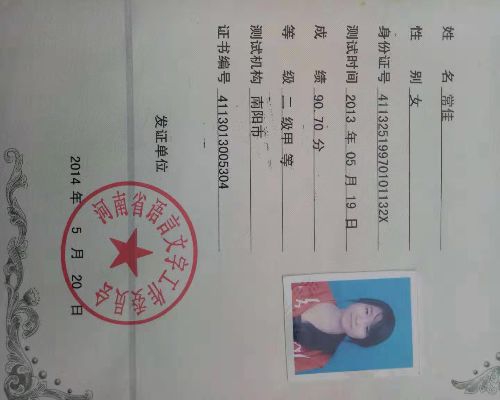 姓 名 常佳
性 别 女
身份证号 41132519970101132X
测试时间 2013 年 05 月 19 日
成 绩 90.70 分
等 级 二 级甲 等
测试机构 南阳市
证书编号 4113013005304
发证单位
河南省语言文字工作委员会
2014 年 5 月 20 日